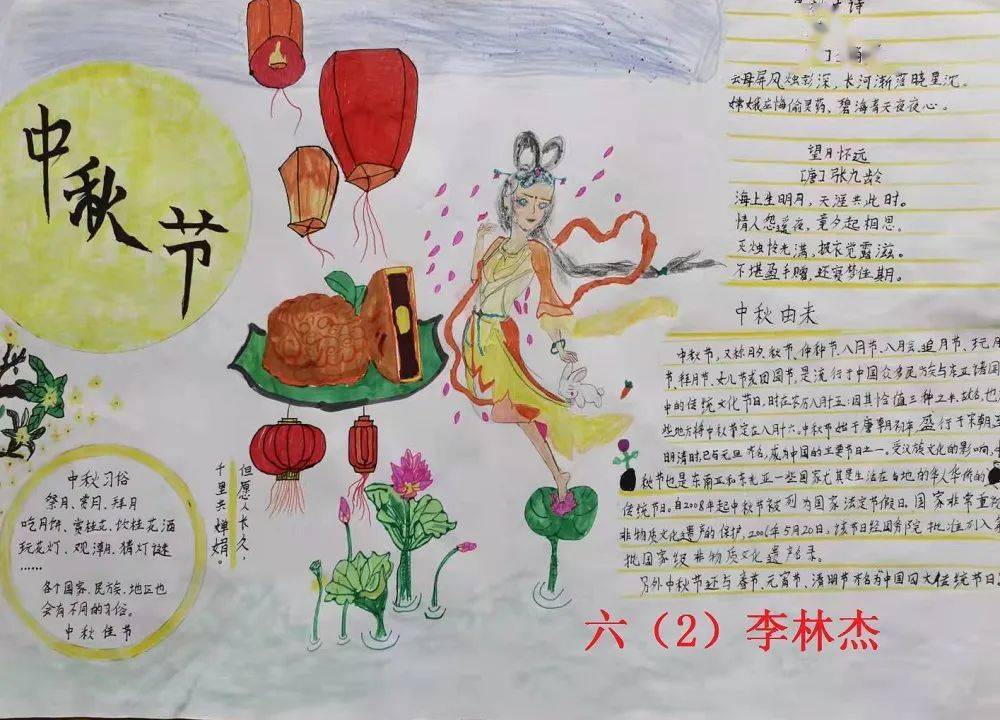 中秋节
中秋习俗
祭月、赏月、拜月
吃月饼、赏桂花、饮桂花酒
玩花灯、观潮、猜灯谜
……
各个国家、民族、地区也
会有不同的习俗。
中秋佳节
但愿人长久，
千里共婵娟。
诗
云母屏风烛影深，长河渐落晓星沉。
嫦娥应悔偷灵药、碧海青天夜夜心。
望月怀远
[唐]张九龄
海上生明月，天涯共此时。
情人怨遥夜，竟夕起相思。
灭烛怜光满，披衣觉露滋。
不堪盈手赠，还寝梦佳期。
中秋由来
中秋节，又称月夕、秋节、仲秋节、八月节、八月会、追月节、玩月
节、拜月节、女儿节或团圆节，是流行于中国众多民族与东亚诸国
中的传统文化节日，时在农历八月十五；因其恰值三秋之半，故名，也
些地方将中秋节定在八月十六。中秋节始于唐朝初年，盛行于宋朝，至
明清时已与元旦齐名，成为中国的主要节日之一。受汉族文化的影响，中
秋节也是东南亚和东北亚一些国家尤其是生活在当地的华人华侨的
传统节日。自2008年起中秋节被列为国家法定节假日。国家非常重视
非物质文化遗产的保护，2006年5月20日，该节日经国务院批准列入
批国家级非物质文化遗产名录。
另外中秋节还与春节、元宵节、清明节齐名为中国四大传统节日
六（2）李林杰